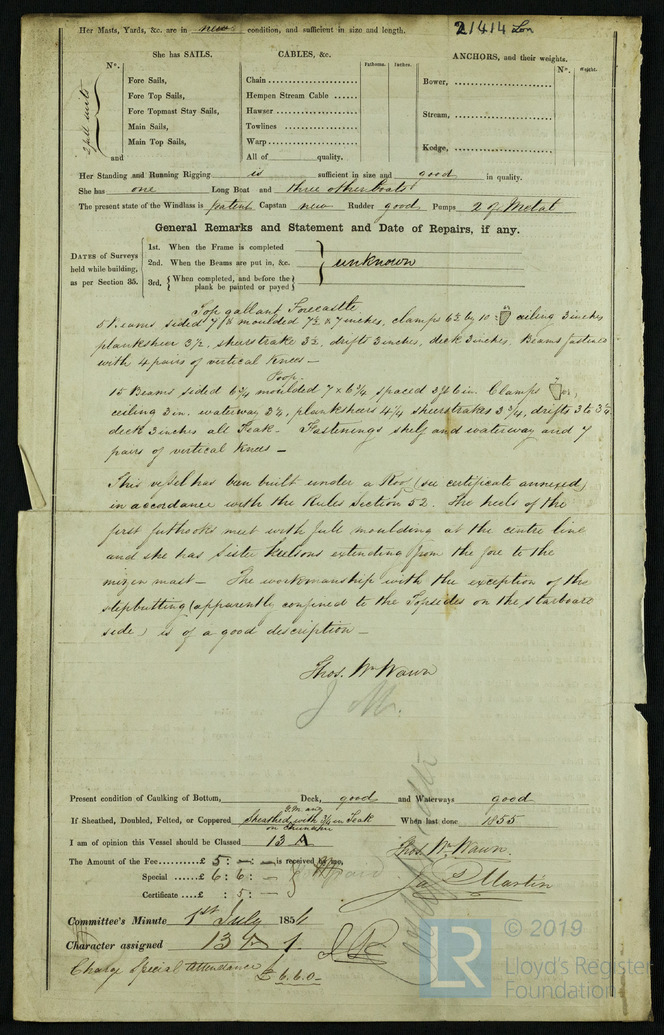 Her Masts, Yards, &c. are in new condition, and sufficient in size and length.
21414 Lon
She has SAILS.
CABLES, &c.
ANCHORS, and their weights.
Fathoms. Inches.
No. Weight.
No.
Fore Sails,
Fore Top Sails,
Fore Topmast Stay Sails,
Main Sails,
Main Top Sails,
and
2 full suits
Chain
Hempen Stream Cable
Hawser
Towlines
Warp
All of quality.
Bower,
Stream,
Kedge,
Her Standing and Running Rigging is sufficient in size and good in quality.
She has one Long Boat and three other boats
The present state of the Windlass is patent Capstan new Rudder good Pumps 2 G. Metal
General Remarks and Statement and Date of Repairs, if any.
DATES of Surveys held while building, as per Section 35.
1st. When the Frame is completed
2nd. When the Beams are put in, &c.
3rd. { When completed, and before the plank be painted or payed }
unknown
Top gallant Forecastle
5 Beams sided 7 moulded 7½ x 7 inches, clamps 6½ by 10 ceiling 3 inches
planksheer 3½, sheerstrake 3½, drifts 3 inches, deck 3 inches. Beams fastened
with 4 pairs of vertical Knees –
Poop.
15 Beams sided 6¾ moulded 7 x 6¾ spaced 3ft 6in. Clamps
ceiling 3 in. waterway 3½, planksheers 4¼ sheerstrakes 3¾, drifts 3 to 3½
deck 3 inches all Teak – Fastenings shelf and waterway and 7
pairs of vertical Knees –
This vessel has been built under a Roof (see certificate annexed)
in accordance with the Rules Section 52. The heels of the
first futtocks meet with full moulding at the centre line
and she has Sister keelsons extending from the fore to the
mizen mast – The workmanship with the exception of the
slipbutting (apparently confined to the Topsides on the starboard
side) is of a good description –
Thos. Wm Wawn
J M.
Present condition of Caulking of Bottom, Deck, good and Waterways good
If Sheathed, Doubled, Felted, or Coppered Sheathed with ¾ in Teak When last done 1855
on Chunam
I am of opinion this Vessel should be Classed 13 A
Thos. Wm. Wawn.
The Amount of the Fee £ 5 : – : – is received by me,
Special £ 6 : 6 : –
Certificate £ : 5 : –
Jas Martin
Committee's Minute 1st July 1856
Character assigned 13 A 1.
Charge Special Attendance £ 6.6.0
© 2019
LR
Lloyd's Register
Foundation